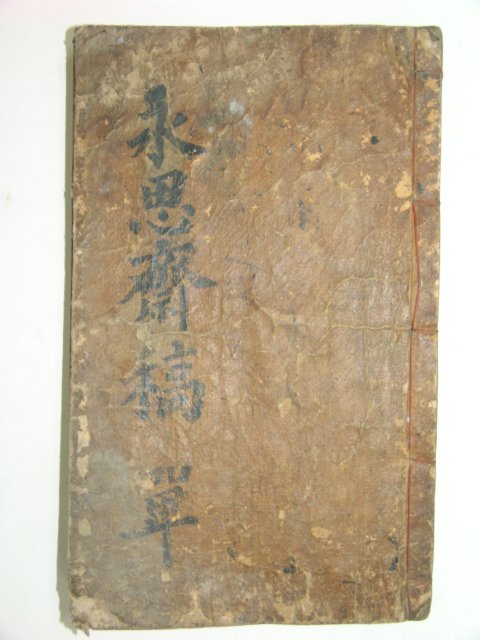 永思齋稿 單